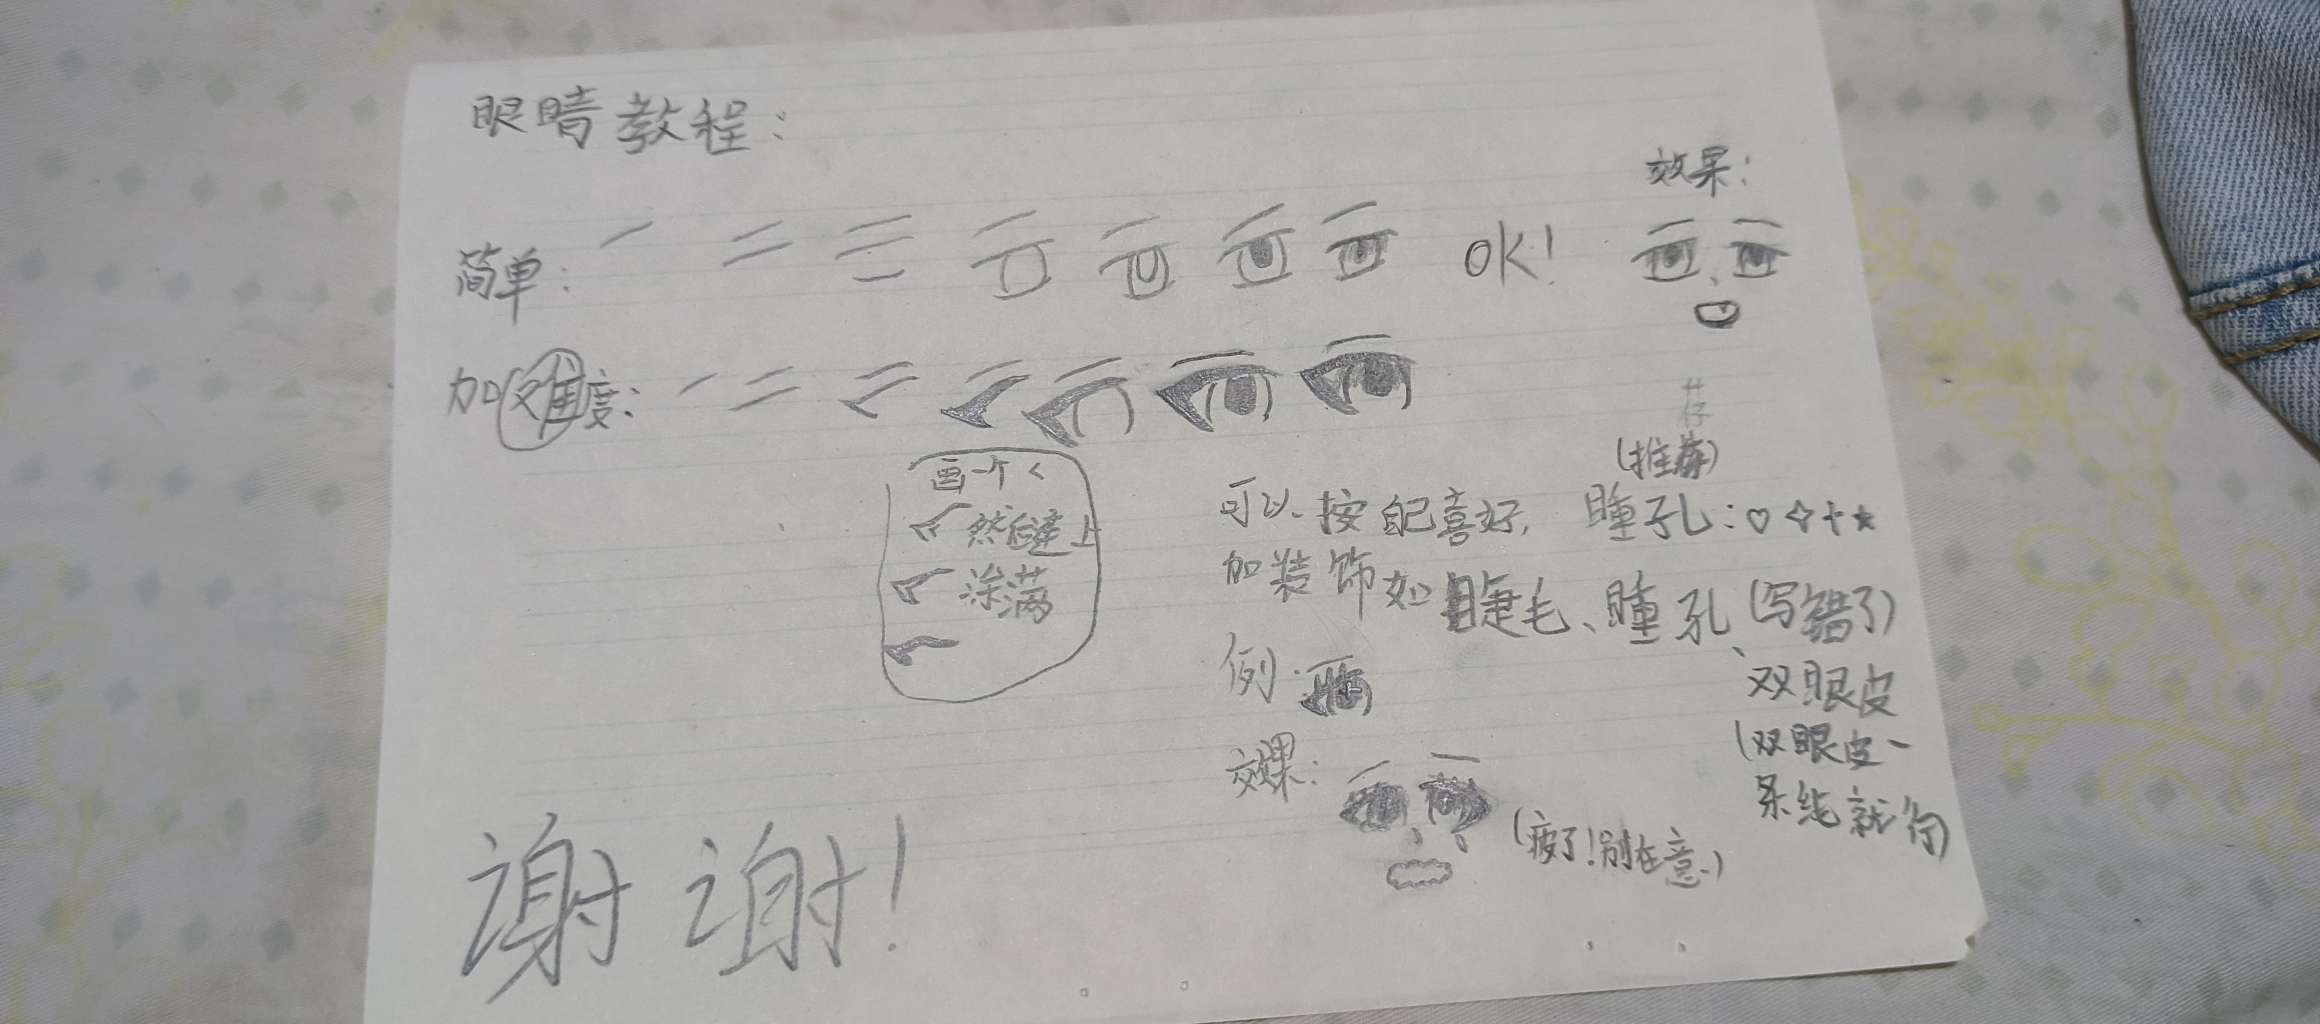 眼睛教程：
效果：
简单：
OK！
加难度：
画一个<
然后连上
涂满
(推荐)
可以按自己喜好，
瞳孔：♡✧+★
加装饰如睫毛、瞳孔、(写错了)
双眼皮
(双眼皮一
条线就行)
例：
效果：
(疲了！别在意.)
谢谢！